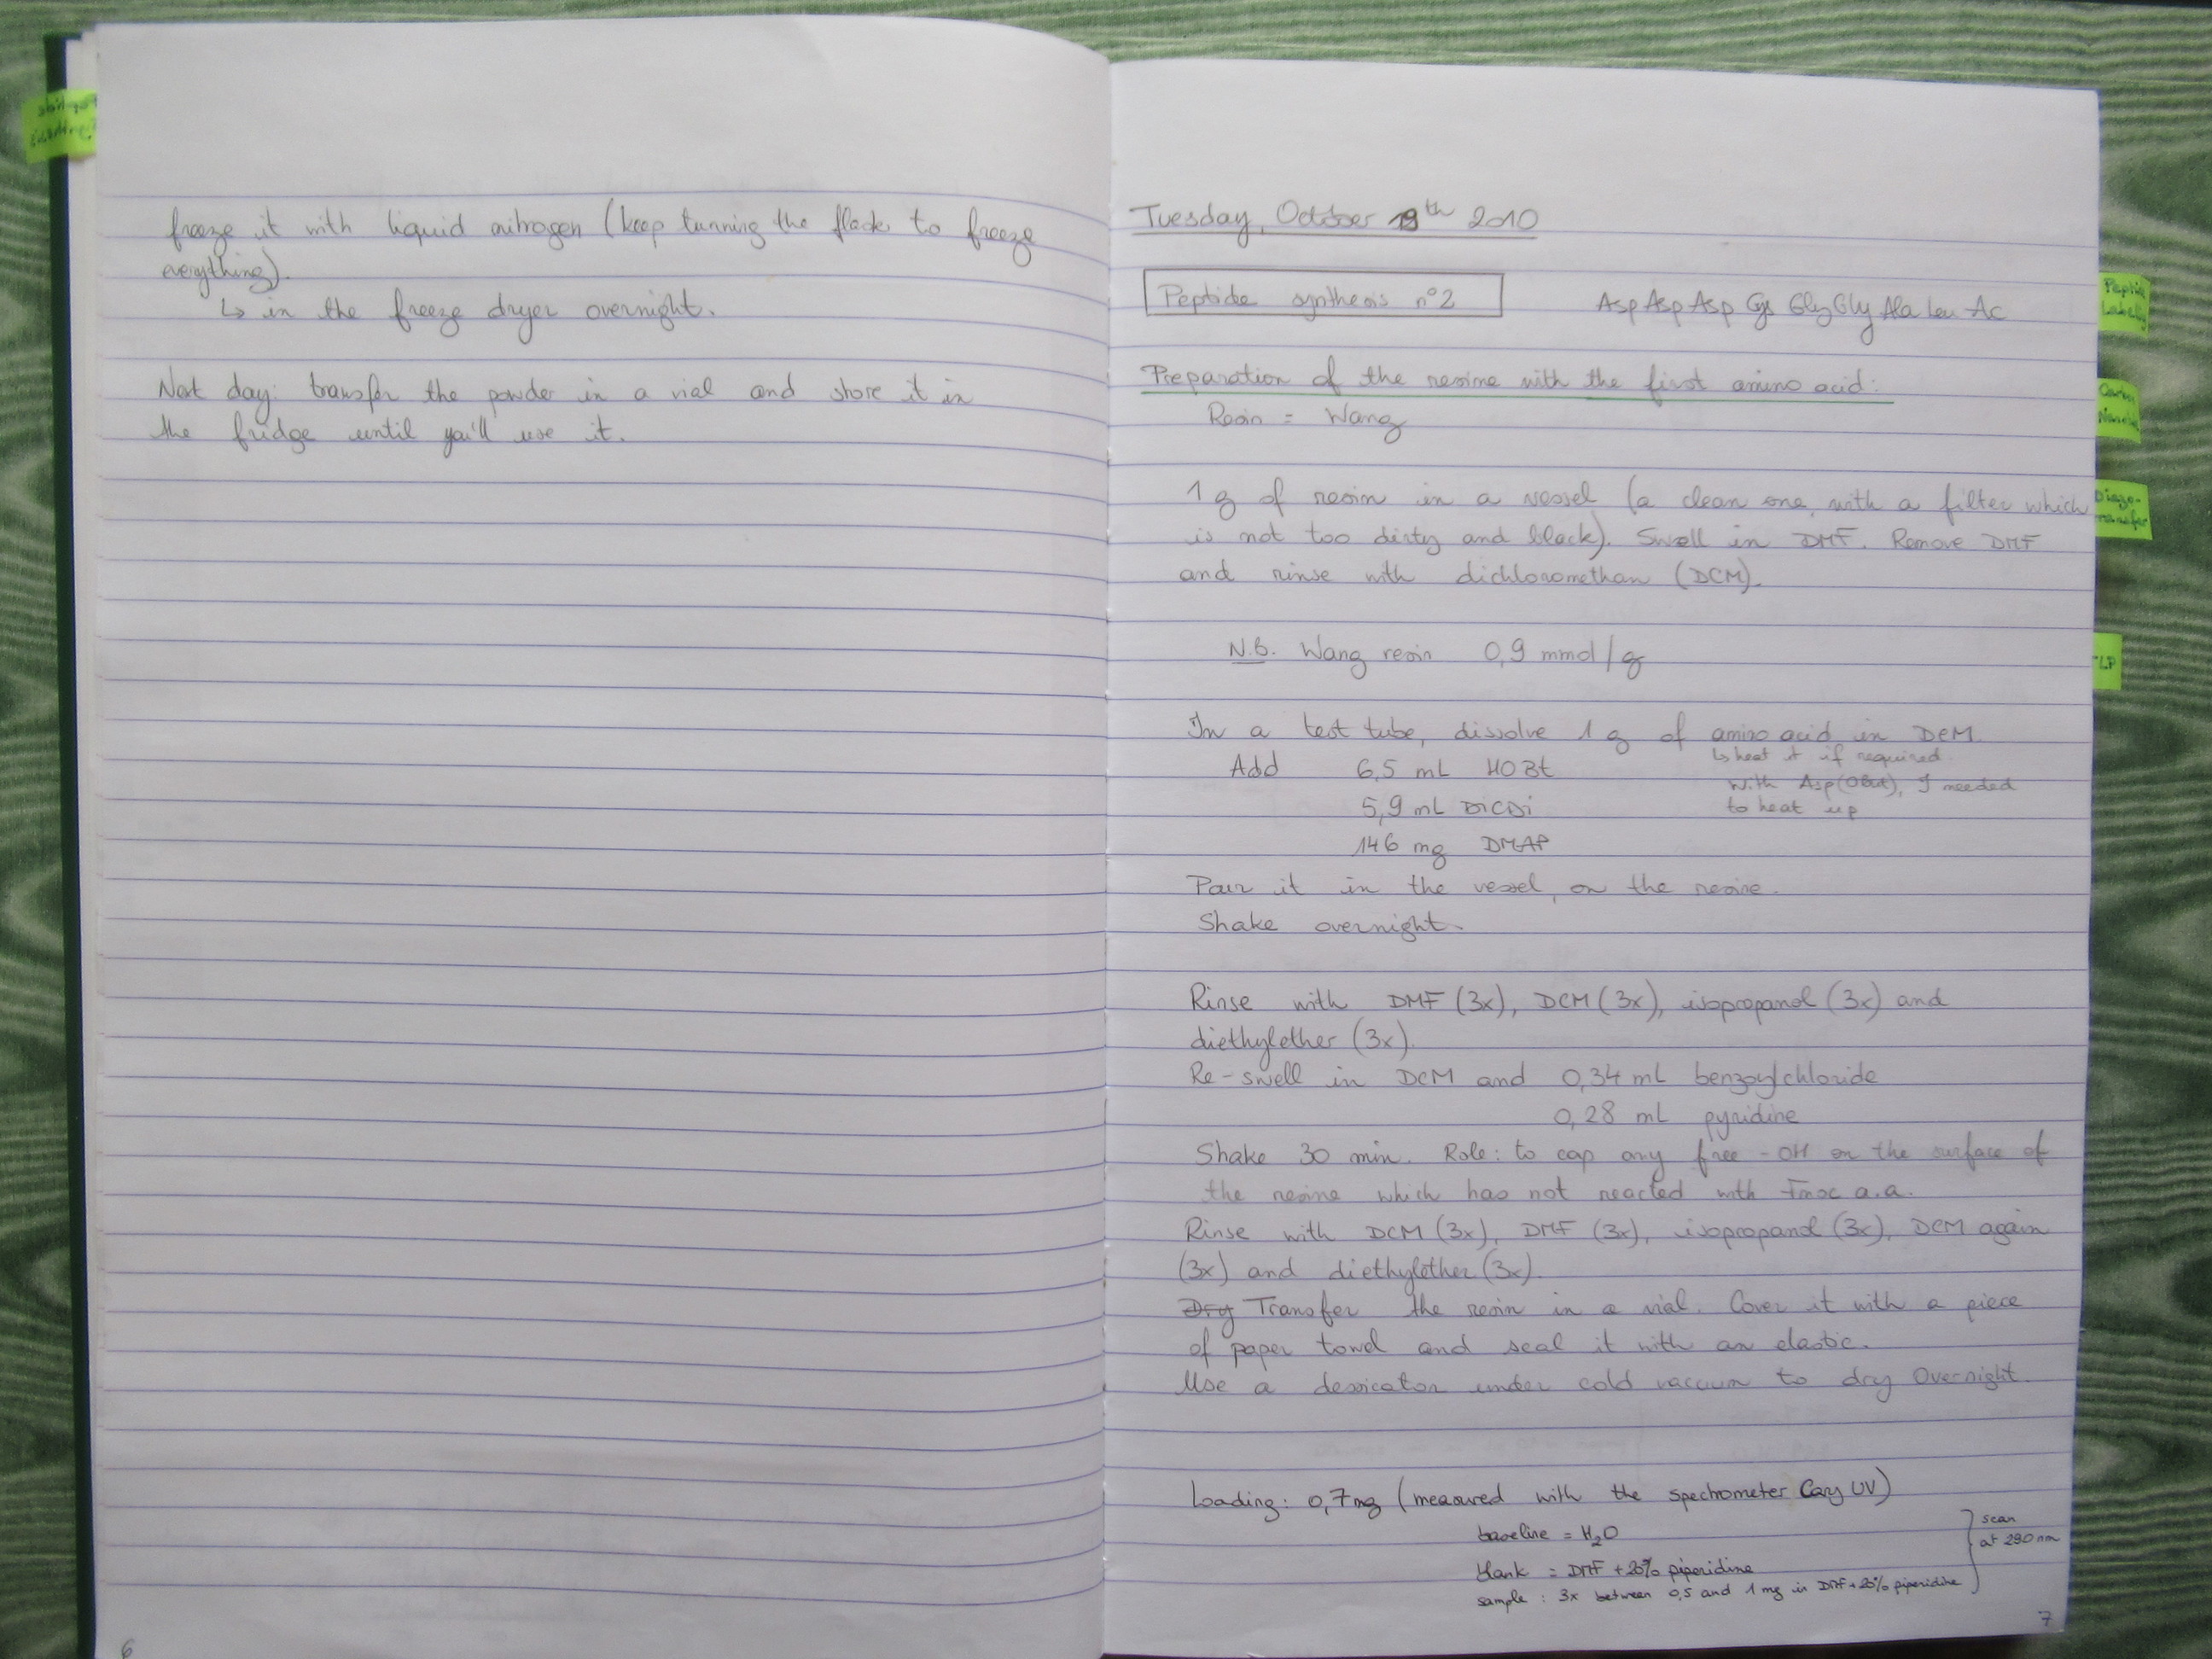 Peptide
Synthesis
freeze it with liquid nitrogen (keep turning the flask to freeze
everything).
↳ in the freeze dryer overnight.
Next day: transfer the powder in a vial and store it in
the fridge until you'll use it.
6
Tuesday, October 19th 2010
Peptide synthesis n°2
Asp Asp Asp Cys Gly Gly Ala Leu - Ac
Preparation of the resine with the first amino acid:
Resin = Wang
1 g of resin in a vessel (a clean one, with a filter which
is not too dirty and black). Swell in DMF. Remove DMF
and rinse with dichloromethan (DCM).
N.B. Wang resin 0,9 mmol/g
In a test tube, dissolve 1 g of amino acid in DCM.
↳ heat it if required.
With Asp(OtBut), I needed
to heat up
Add 6,5 mL HOBt
5,9 mL DiCDi
146 mg DMAP
Pour it in the vessel, on the resine.
Shake overnight.
Rinse with DMF (3x), DCM (3x), isopropanol (3x) and
diethylether (3x).
Re-swell in DCM and 0,34 mL benzoylchloride
0,28 mL pyridine
Shake 30 min. Role: to cap any free -OH on the surface of
the resine which has not reacted with Fmoc a.a.
Rinse with DCM (3x), DMF (3x), isopropanol (3x), DCM again
(3x) and diethylether (3x).
Dry Transfer the resin in a vial. Cover it with a piece
of paper towel and seal it with an elastic.
Use a dessicator under cold vacuum to dry overnight.
Loading: 0,7mg (measured with the spechrometer Cary UV)
baseline = H2O
blank = DMF + 20% piperidine
sample : 3x between 0,5 and 1 mg in DMF + 20% piperidine
scan
at 290 nm
7
Peptide
Labeling
Diazo-
transfer